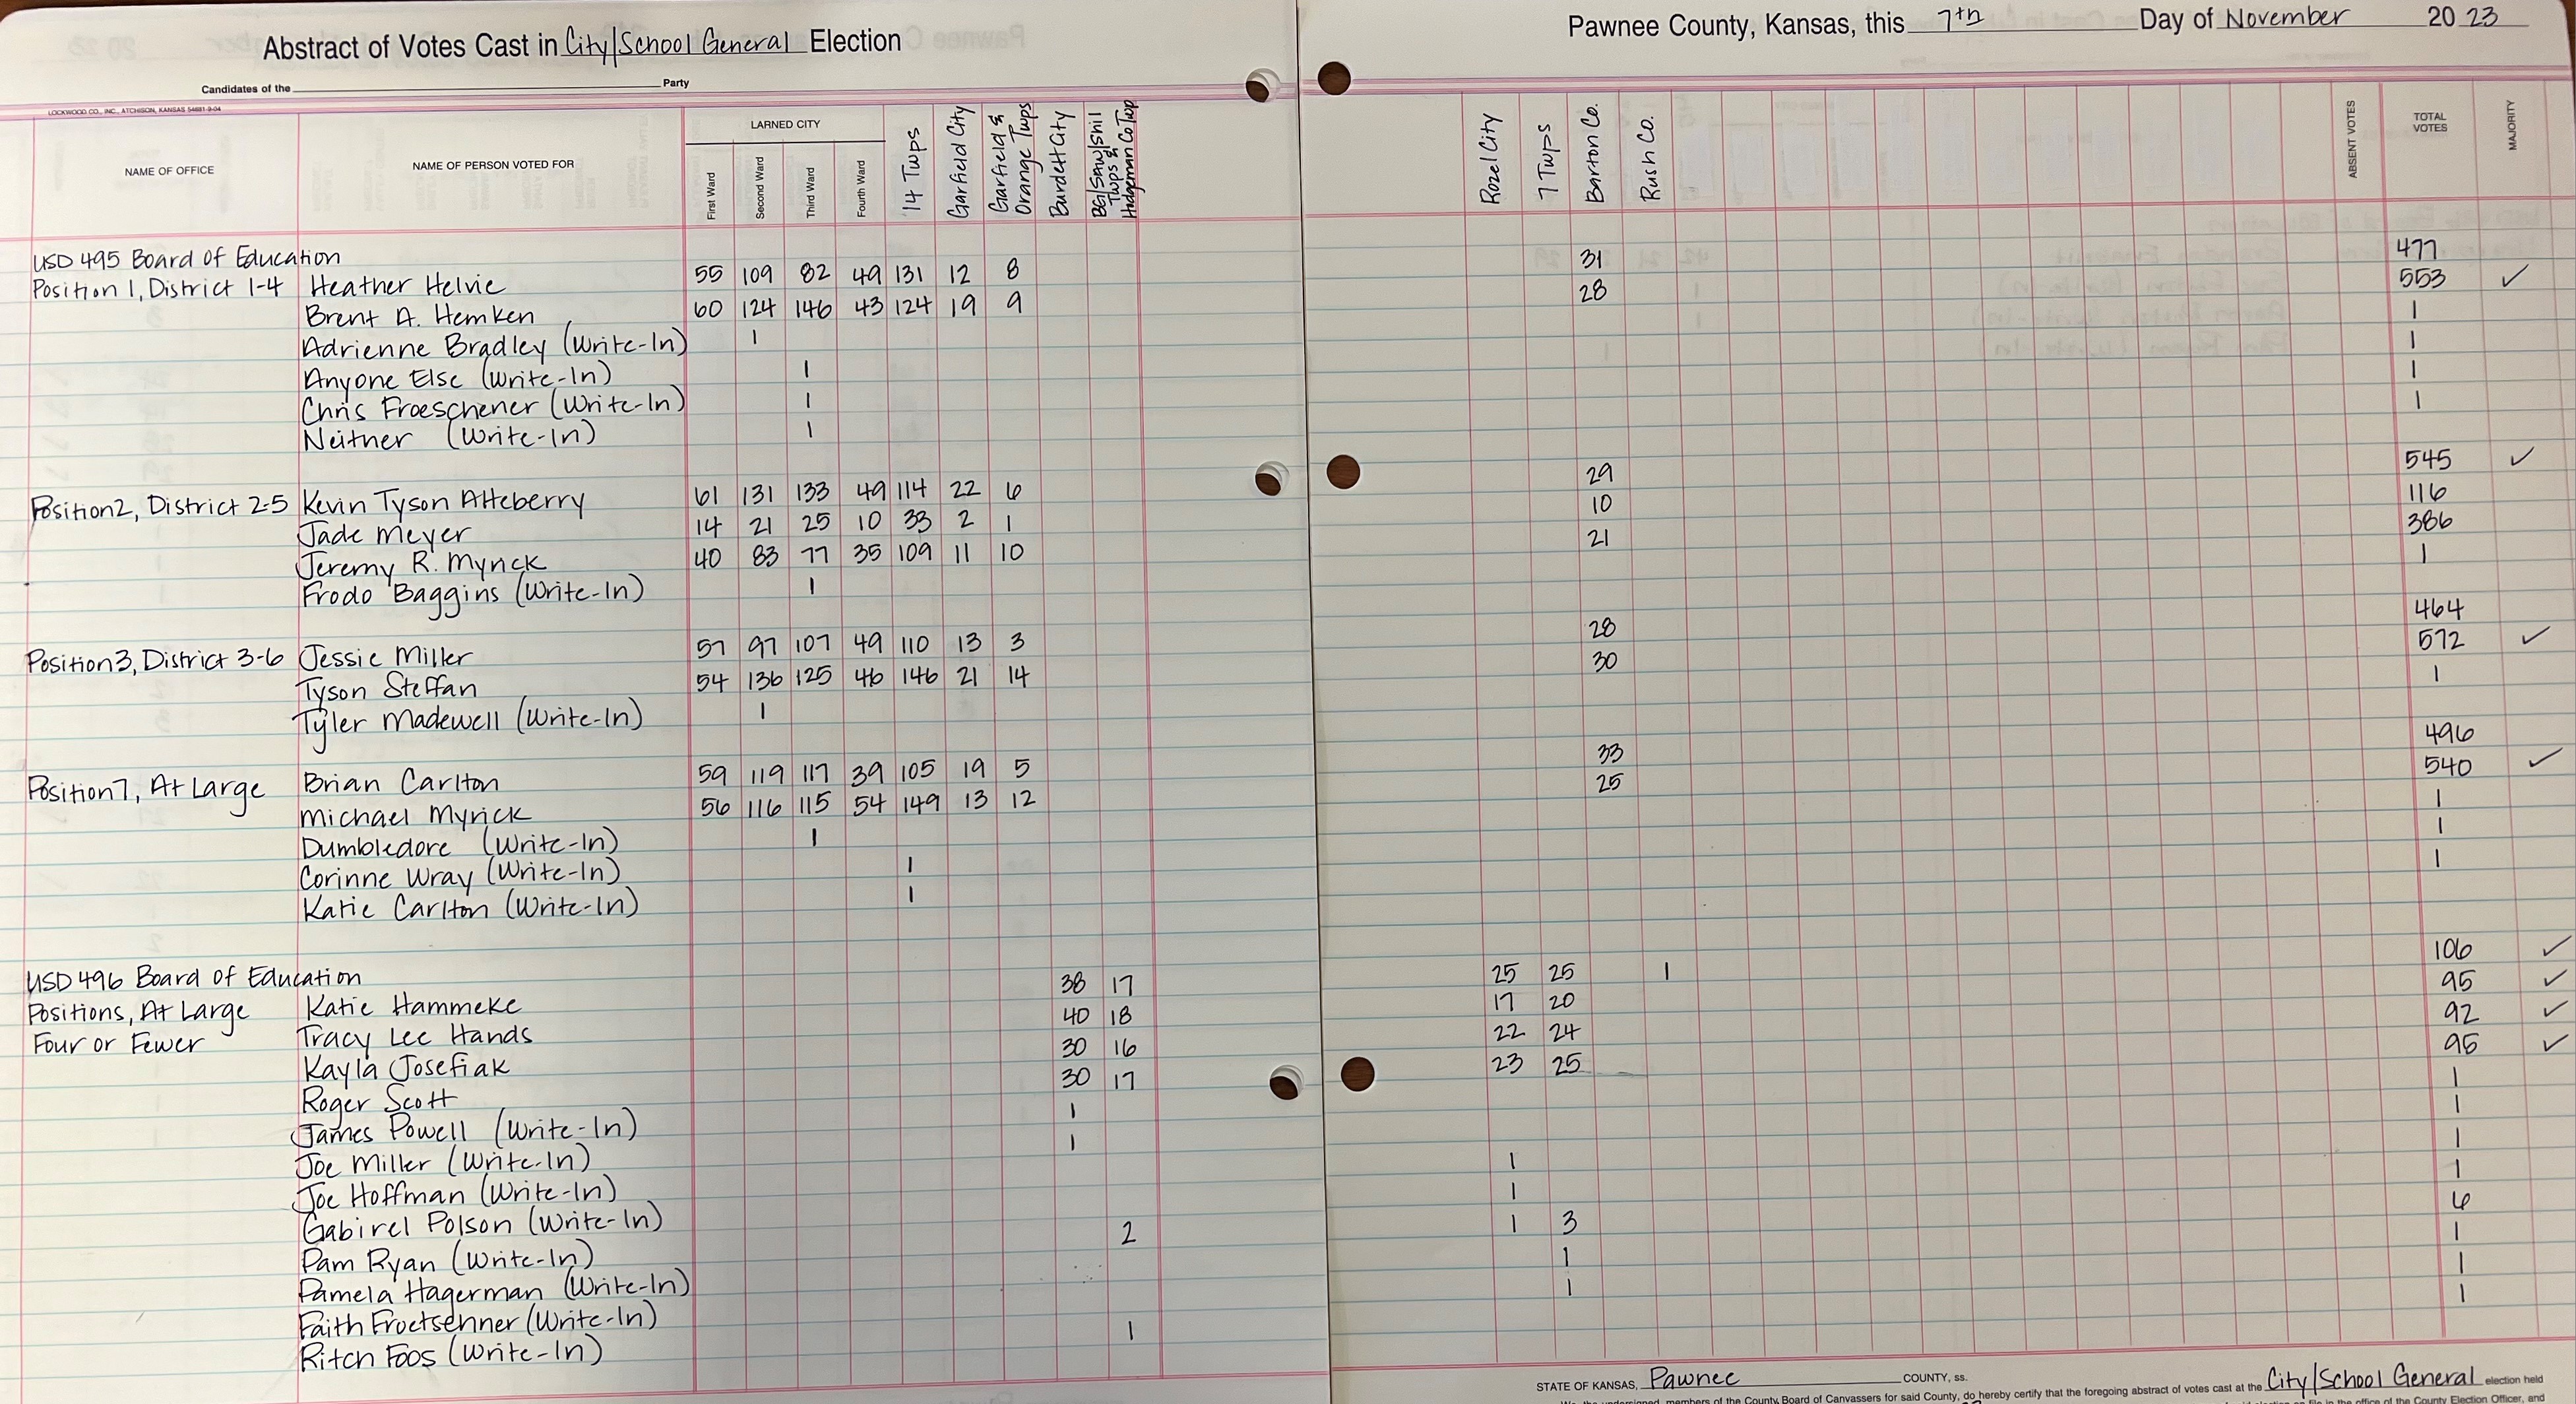 Abstract of Votes Cast in City/School General Election
Pawnee County, Kansas, this 7th Day of November 2023
Candidates of the Party
LOCKWOOD CO., INC., ATCHISON, KANSAS 54881-9-04
NAME OF OFFICE NAME OF PERSON VOTED FOR LARNED CITY First Ward Second Ward Third Ward Fourth Ward 14 Twps Garfield City Garfield & Orange Twps Burdett City Twps & Hodgeman Co Twp Rozel City 7 Twps Barton Co. Rush Co. ABSENT VOTES TOTAL VOTES MAJORITY
USD 495 Board of Education
Position 1, District 1-4 Heather Helvie 55 109 82 49 131 12 8 31 477
Brent A. Hemken 60 124 146 43 124 19 9 28 553 ✓
Adrienne Bradley (Write-In) 1 1
Anyone Else (Write-In) 1 1
Chris Froeschener (Write-In) 1 1
Neither (Write-In) 1 1
Position 2, District 2-5 Kevin Tyson Atteberry 61 131 133 49 114 22 6 29 545 ✓
Jade Meyer 14 21 25 10 33 2 1 10 116
Jeremy R. Myrick 40 83 77 35 109 11 10 21 386
Frodo Baggins (Write-In) 1 1
Position 3, District 3-6 Jessie Miller 57 97 107 49 110 13 3 28 464
Tyson Steffan 54 136 125 46 146 21 14 30 572 ✓
Tyler Madewell (Write-In) 1 1
Position 7, At Large Brian Carlton 59 119 117 39 105 19 5 33 496
Michael Myrick 56 116 115 54 149 13 12 25 540 ✓
Dumbledore (Write-In) 1 1
Corinne Wray (Write-In) 1 1
Katie Carlton (Write-In) 1 1
USD 496 Board of Education
Positions, At Large Katie Hammeke 38 17 25 25 1 106 ✓
Four or Fewer Tracy Lee Hands 40 18 17 20 95 ✓
Kayla Josefiak 30 16 22 24 92 ✓
Roger Scott 30 17 23 25 95 ✓
James Powell (Write-In) 1 1
Joe Miller (Write-In) 1 1
Joe Hoffman (Write-In) 1 1
Gabirel Polson (Write-In) 1 1
Pam Ryan (Write-In) 2 1 3 6
Pamela Hagerman (Write-In) 1 1
Faith Froetsenner (Write-In) 1 1
Ritch Foos (Write-In) 1 1
STATE OF KANSAS, Pawnee COUNTY, ss.
We, the undersigned, members of the County Board of Canvassers for said County, do hereby certify that the foregoing abstract of votes cast at the City/School General election held